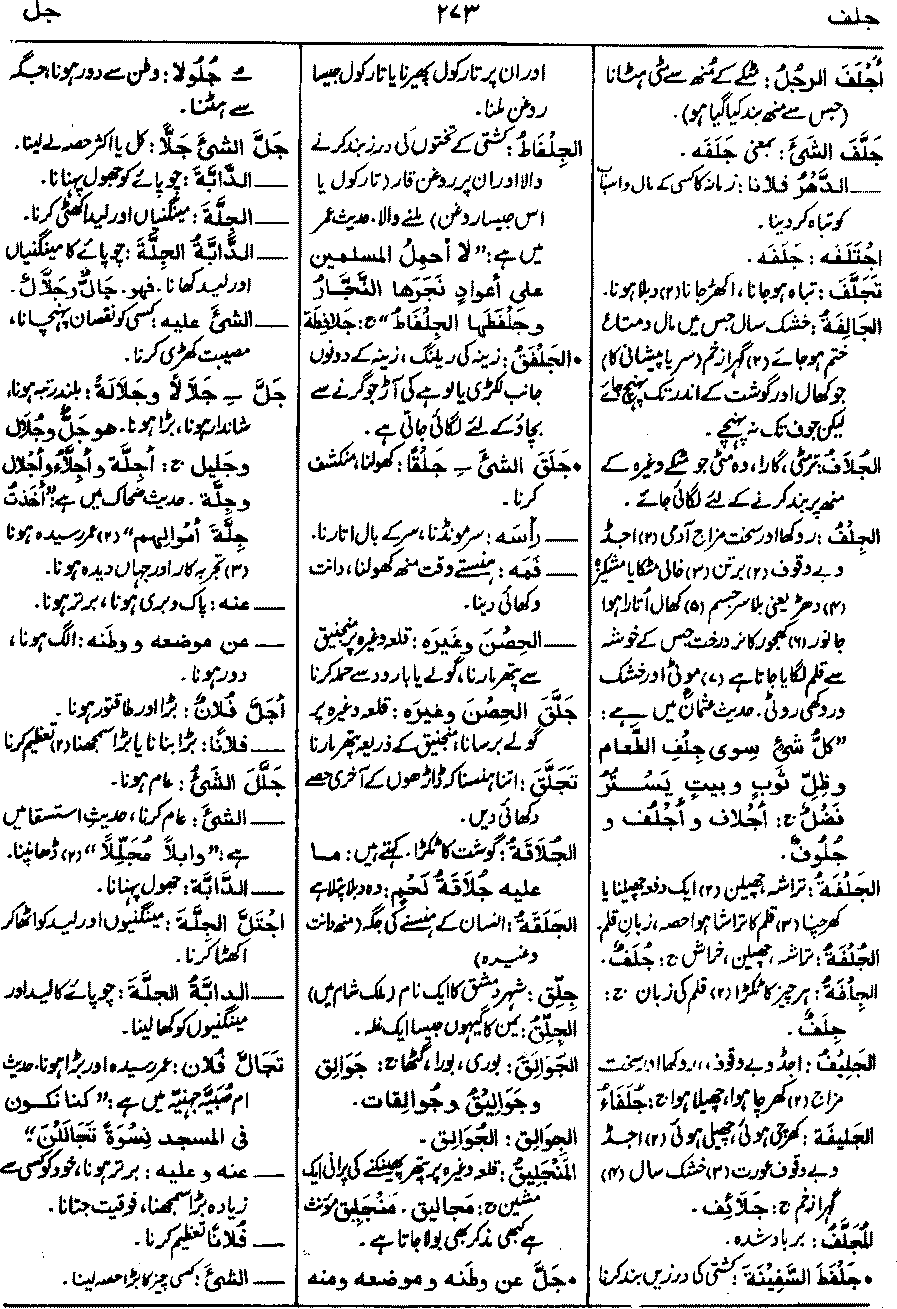 جلف ۲۷۳ جل
أَجْلَفَ الرجُلُ : مٹکے کے مُنھ سے مٹی ہٹانا
(جس سے منھ بند کیا گیا ہو).
جَلَّفَ الشئَ : بمعنی جَلَفَه .
— الدَّهْرُ فلانا : زمانہ کا کسی کے مال واسباب
کو تباہ کر دینا .
اجْتَلَفَه : جَلَفَه .
تَجَلَّفَ : تباہ ہوجانا ، اکھڑ جانا (۲) دبلا ہونا.
الجَالِفَةُ : خشک سال جس میں مال و متاع
ختم ہو جائے (۲) گہرا زخم (سر یا پیشانی کا)
جو کھال اور گوشت کے اندر تک پہنچ جائے
لیکن جوف تک نہ پہنچے .
الجُلَافُ : مٹی ، گارا ، وہ مٹی جو مٹکے وغیرہ کے
منھ پر بند کرنے کے لئے لگائی جائے .
الجِلْفُ : روکھا اور سخت مزاج آدمی (۲) اجڈ
و بے وقوف (۲) برتن (۳) خالی مٹکا یا مشکیزہ
(۴) دھڑ یعنی بلا سر جسم (۵) کھال اُتارا ہوا
جانور (۶) کھجور کا نر درخت جس کے خوشہ
سے قلم لگایا جاتا ہے (۷) موٹی اور خشک
و روکھی روٹی . حدیث عثمانؓ میں ہے :
”كلُّ شئٍ سِوى جِلْفِ الطَّعام
وظِلِّ ثَوبٍ وبيتٍ يَسْتُرُ
فَضْلٌ ج: أَجْلاف و أَجْلُف و
جُلُوفٌ .
الجَلْفَةُ : تراشہ، چھیلن (۲) ایک دفعہ چھیلنا یا
کھرچنا (۳) قلم کا تراشا ہوا حصہ، زبانِ قلم.
الجُلْفَةُ : تراشہ، چھیلن، خراش ج: جُلَفٌ .
الجِلْفَةُ : ہر چیز کا ٹکڑا (۲) قلم کی زبان ج:
جِلَفٌ .
الجَلِيفُ : اجڈ و بے وقوف، روکھا اور سخت
مزاج (۲) کھرچا ہوا، چھیلا ہوا ج: جُلَفَاءُ
الجَليفَة : کھرچی ہوئی، چھلی ہوئی (۲) اجڈ
و بے وقوف عورت (۳) خشک سال (۴)
گہرا زخم ج: جَلَائِف .
المُجَلَّفُ : برباد شدہ .
• جَلْفَطَ السَّفِينَةَ : کشتی کی درزیں بند کرنا
اور ان پر تارکول پھیرنا یا تارکول جیسا
روغن ملنا .
الجِلْفَاطُ : کشتی کے تختوں کی درز بند کرنے
والا اور ان پر روغن قار (تارکول یا
اس جیسا روغن) ملنے والا. حدیث عمر
میں ہے : ”لا أحمِلُ المسلمين
على أعوادٍ نَجَرَها النَّجَّارُ
وجَلْفَطَها الجِلْفَاطُ“ ج: جَلافِطَة
• الجَلْفَقُ : زینہ کی ریلنگ ، زینہ کے دونوں
جانب لکڑی یا لوہے کی آڑ جو گرنے سے
بچاؤ کے لئے لگائی جاتی ہے .
• جَلَقَ الشئَ ِ جَلْقًا : کھولنا، منکشف
کرنا .
— رأسَه : سر مونڈنا، سر کے بال اتارنا.
— فَمَه : ہنستے وقت منھ کھولنا، دانت
دکھائی دینا .
— الحِصْنَ وغَيرَه : قلعہ وغیرہ پر منجنیق
سے پتھر مارنا، گولے یا بارود سے حملہ کرنا
جَلَّقَ الحِصْنَ وغيرَه : قلعہ وغیرہ پر
گولے برسانا، منجنیق کے ذریعہ پتھر مارنا
تَجَلَّقَ : اتنا ہنسنا کہ ڈاڑھوں کے آخری حصے
دکھائی دیں .
الجُلَاقَةُ : گوشت کا ٹکڑا . کہتے ہیں : ما
عليه جُلَاقَةُ لَحْمٍ : وہ دبلا پتلا ہے
الجَلَقَةُ : انسان کے ہنسنے کی جگہ (منھ دانت
وغیرہ)
جِلَّق : شہر دمشق کا ایک نام (ملک شام میں)
الجِلَّقُ : یمن کا گیہوں جیسا ایک غلہ .
الجَوَالِقُ : بوری ، بورا، گٹھا ج: جَوَالِق
وجَوَالِيقُ وجُوالِقات .
الجِوالِق : الجُوَالِق .
المَنْجَلِيقُ : قلعہ وغیرہ پر پتھر پھینکنے کی پرانی ایک
مشین ج: مَجاليق . مَنْجَلِيق مؤنث
ہے کبھی مذکر بھی بولا جاتا ہے .
• جَلَّ عن وطَنِه و موضعِه ومنه
ـُ جُلُولا : وطن سے دور ہونا، جگہ
سے ہٹنا .
جَلَّ الشئَ جَلًّا : کل یا اکثر حصہ لے لینا .
— الدَّابَّةَ : چوپائے کو جھول پہنانا .
— الجِلَّةَ : مینگنیاں اور لید اکھٹی کرنا .
— الدَّابَّةُ الجِلَّةَ : چوپائے کا مینگنیاں
اور لید کھانا . فهو . جَالٌّ وجَلَّالٌ .
— الشئُ عليه : کسی کو نقصان پہنچانا،
مصیبت کھڑی کرنا .
جَلَّ ـِ جَلَالًا وجَلَالَةً : بلند رتبہ ہونا،
شاندار ہونا، بڑا ہونا . هو جَلٌّ وجُلَال
وجَليل ج: أَجِلَّة وأَجِلَّاءُ وأَجْلال
وجِلَّة . حدیث ضحاک میں ہے : ”أخَذتَ
جِلَّةَ أموالِهم“ (۲) عمر رسیدہ ہونا
(۳) تجربہ کار اور جہاں دیدہ ہونا .
— عنه : پاک و بری ہونا ، برتر ہونا .
— عن موضعه ووطنه : الگ ہونا،
دور ہونا .
أَجَلَّ فُلانٌ : بڑا اور طاقتور ہونا .
— فلانًا : بڑا بنانا یا بڑا سمجھنا (۲) تعظیم کرنا
جَلَّلَ الشئُ : عام ہونا .
— الشئَ : عام کرنا، حدیثِ استسقا میں
ہے : ”وابلاً مُجَلِّلاً“ (۲) ڈھانپنا .
— الدَّابَّةَ : جھول پہنانا .
اجْتَلَّ الجِلَّةَ : مینگنیوں اور لید کو اٹھا کر
اکھٹا کرنا .
— الدابَّةُ الجِلَّةَ : چوپائے کا لید اور
مینگنیوں کو کھا لینا .
تَجَالَّ فُلَان : عمر رسیدہ اور بڑا ہونا. حدیث
ام صُبَيَّہ جہنیہ میں ہے : ”كنا نكون
فى المسجد نِسْوَةً تَجَالَلْنَ“
— عنه وعليه : برتر ہونا، خود کو کسی سے
زیادہ بڑا سمجھنا، فوقیت جتانا .
— فُلَانًا تعظیم کرنا .
— الشئَ : کسی چیز کا بڑا حصہ لینا .